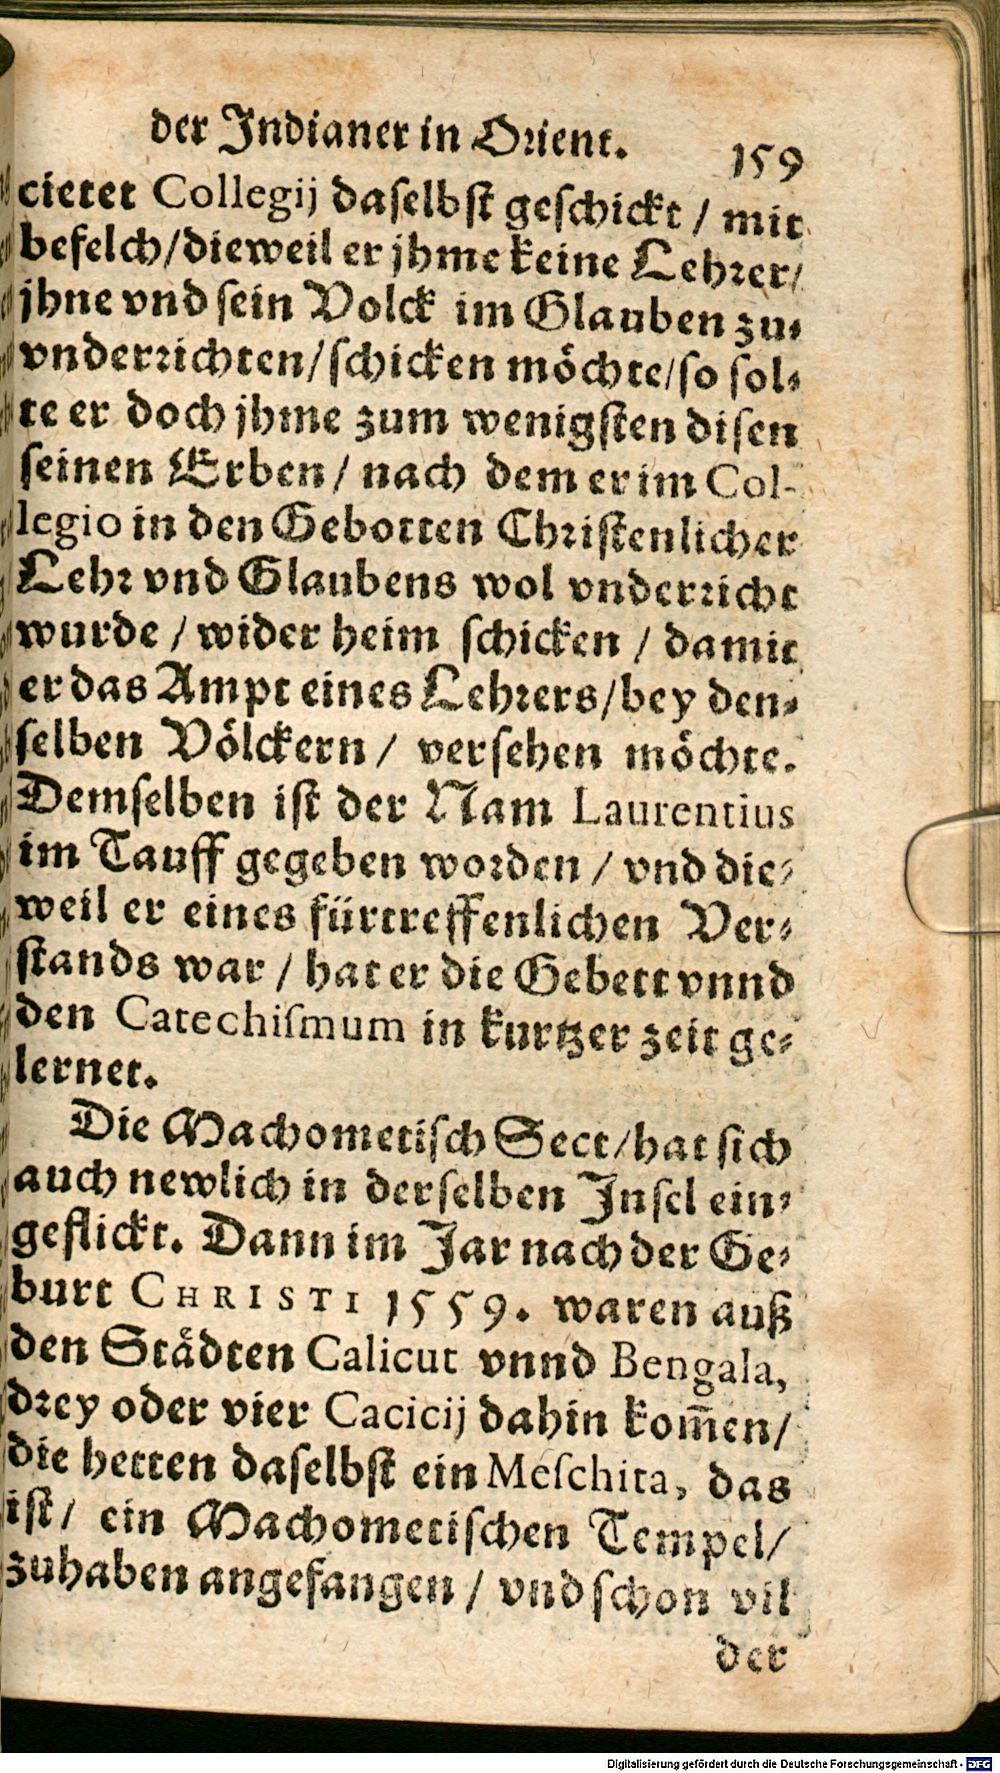 der Indianer in Orient.
159
cietet Collegij daſelbſt geſchickt / mit
befelch/dieweil er jhme keine Lehrer/
jhne vnd ſein Volck im Glauben zu⸗
vnderrichten/ſchicken möchte/ſo ſol⸗
te er doch jhme zum wenigſten diſen
ſeinen Erben / nach dem er im Col-
legio in den Gebotten Chriſtenlicher
Lehr vnd Glaubens wol vnderricht
wurde / wider heim ſchicken / damit
er das Ampt eines Lehrers/bey den⸗
ſelben Völckern / verſehen möchte.
Demſelben iſt der Nam Laurentius
im Tauff gegeben worden / vnd die⸗
weil er eines fürtreffenlichen Ver⸗
ſtands war / hat er die Gebett vnnd
den Catechiſmum in kurtzer zeit ge⸗
lernet.
Die Machometiſch Sect/hat ſich
auch newlich in derſelben Inſel ein⸗
geflickt. Dann im Jar nach der Ge⸗
burt CHRISTI 1559. waren auß
den Stådten Calicut vnnd Bengala,
drey oder vier Cacicij dahin kom̄en/
die hetten daſelbſt ein Meſchita, das
iſt/ ein Machometiſchen Tempel/
zuhaben angefangen / vnd ſchon vil
der
Digitalisierung gefördert durch die Deutsche Forschungsgemeinschaft - DFG